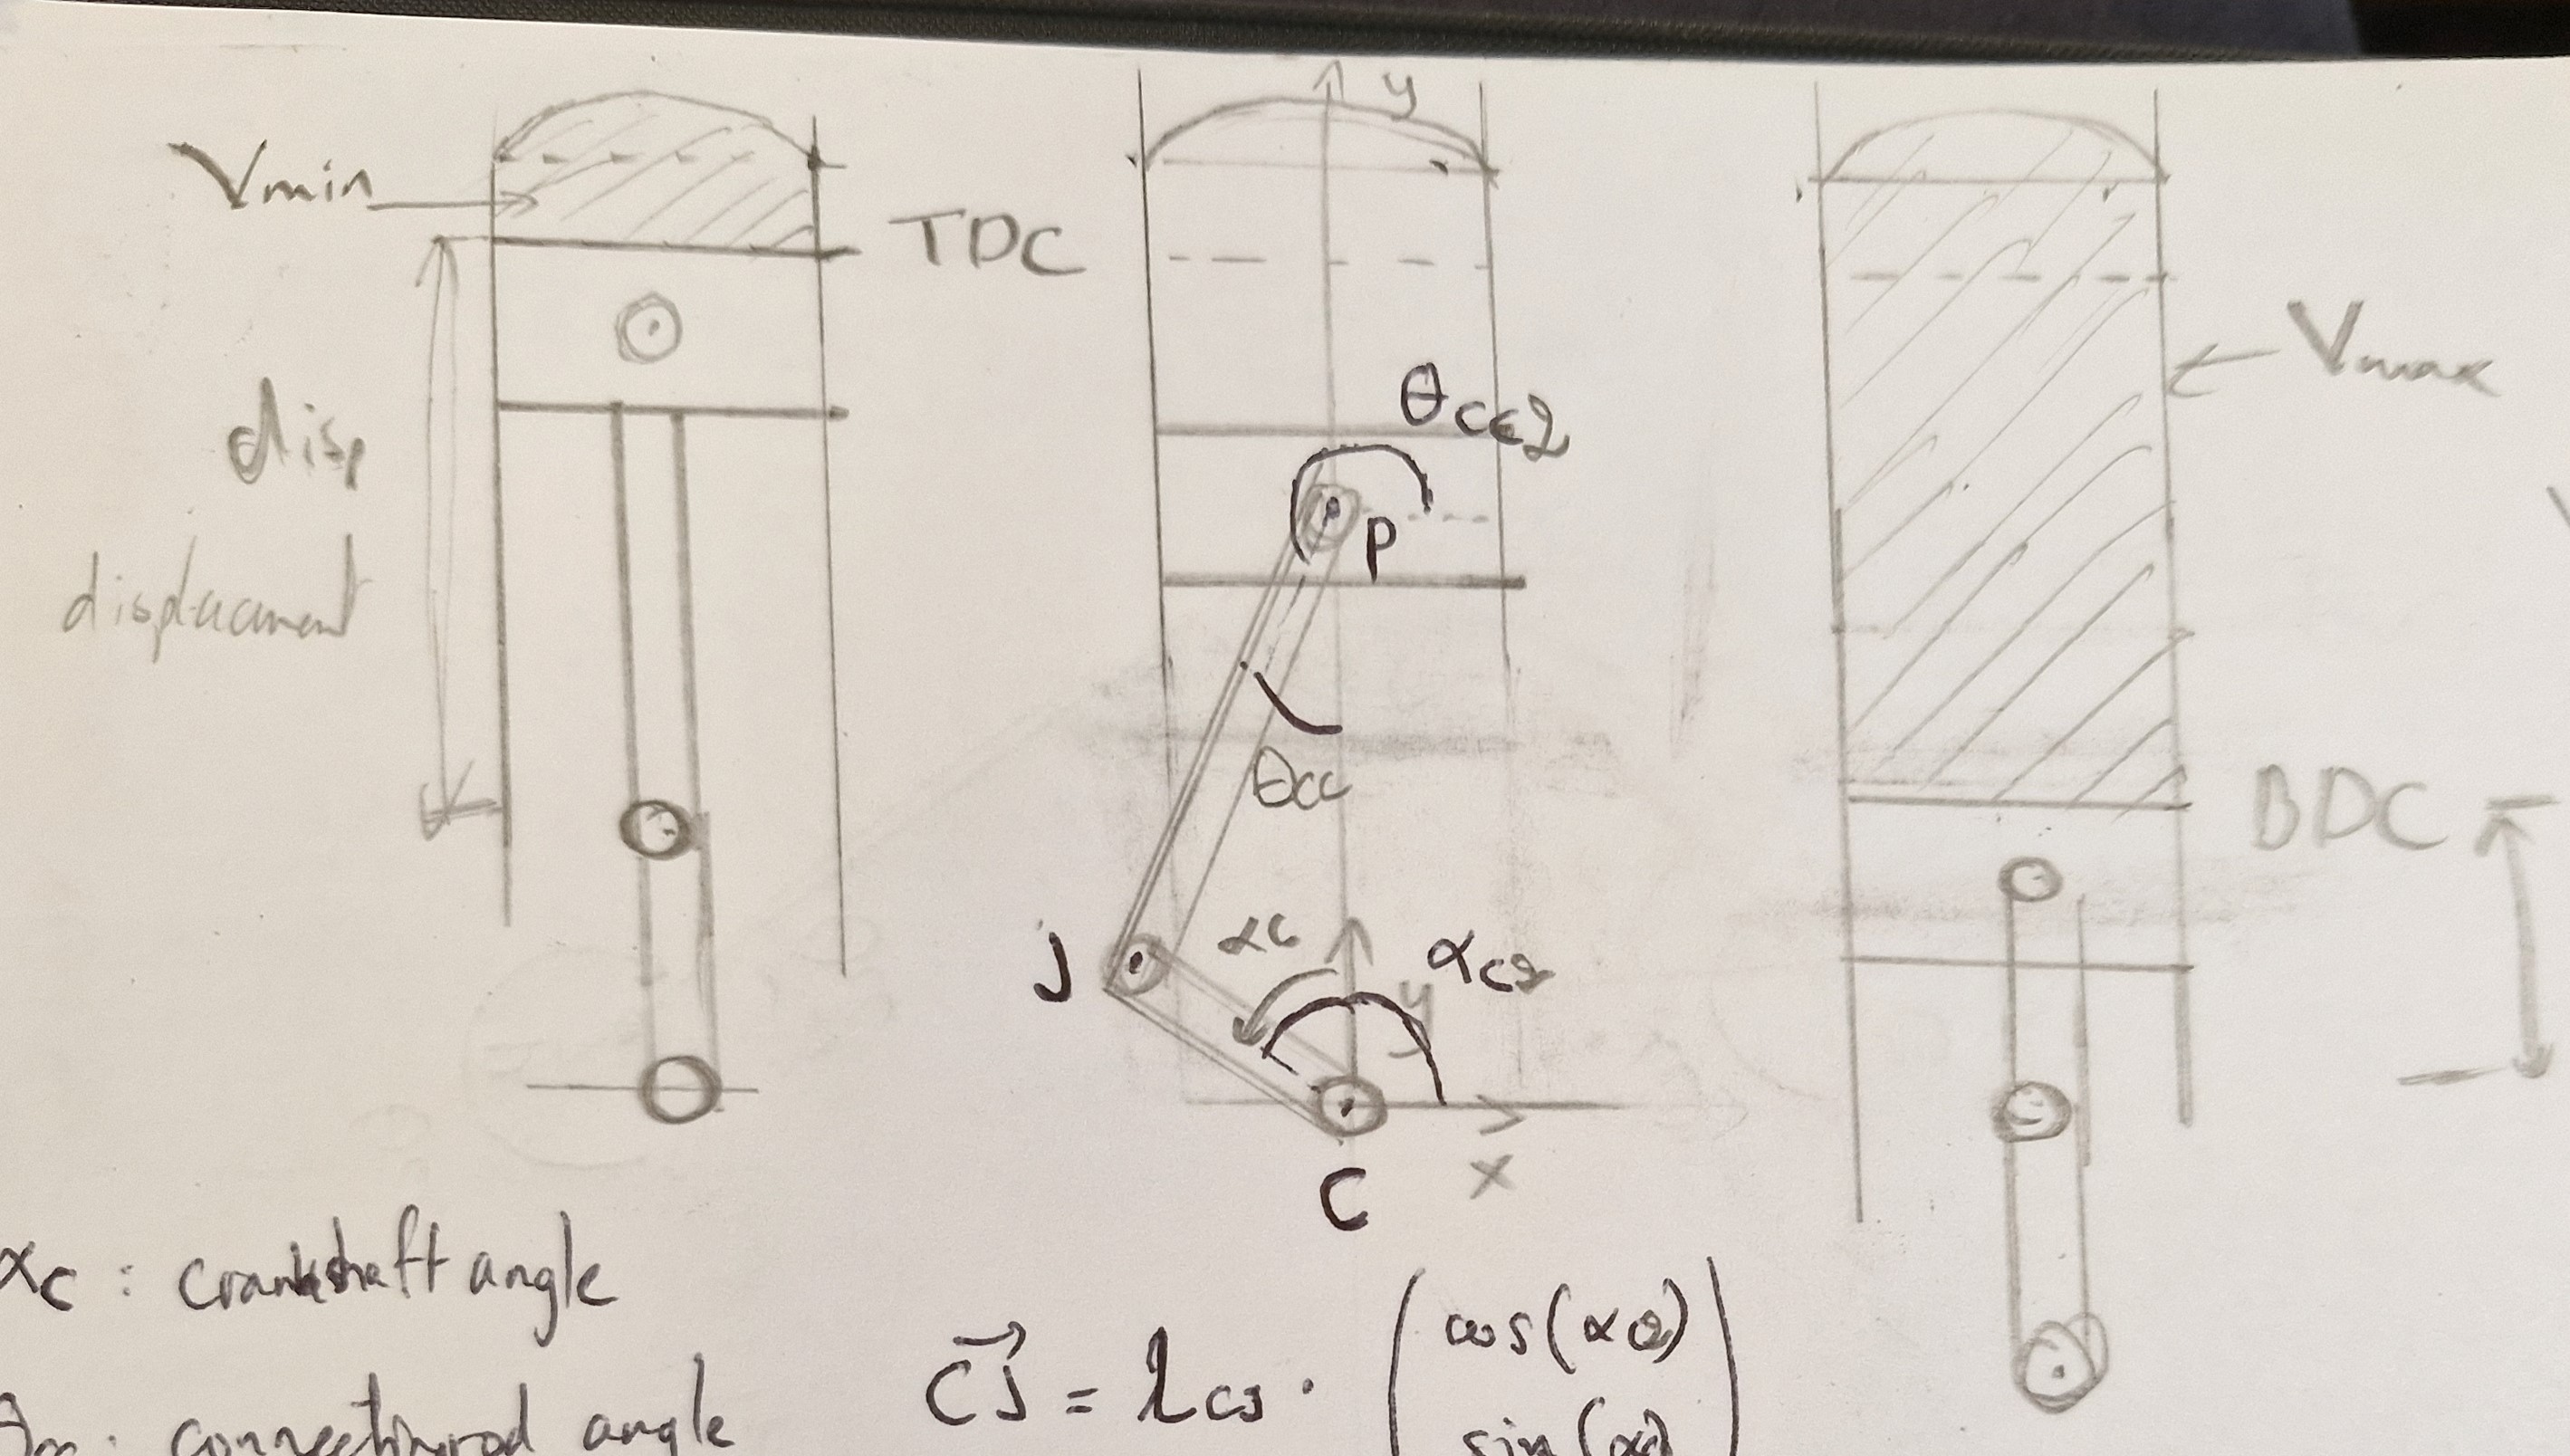 Vmin
TDC
disp
displacement
y
θcc2
P
θcc
J
αc
αc2
y
x
C
Vmax
BDC
αc : crankshaft angle
θcc : connecting rod angle
CJ = lcs · ( cos(αc2)
sin(αc2)